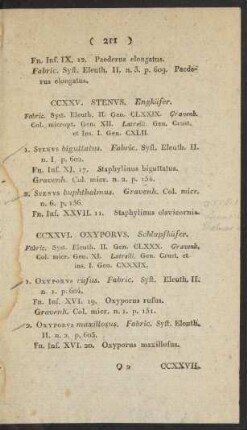 ( 211 )
Fn. Inf. IX. 12. Paederus elongatus.
Fabric. Syft. Eleuth. II. n. 3. p. 609. Paede-
rus elongatus.
CCXXV. STENVS. Engkäfer.
Fabric. Syst. Eleuth. II. Gen. CLXXIX. Gravenh.
Col. micropt. Gen. XII. Latreill. Gen. Crust.
et Ins. I. Gen. CXLII.
1. STENVS biguttatus. Fabric. Syft. Eleuth. II.
n. 1. p. 602.
Fn. Inf. XI. 17. Staphylinus biguttatus.
Gravenh. Col. micr. n. 2. p. 154.
2. STENVS buphthalmus. Gravenh. Col. micr.
n. 6. p. 156.
Fn. Inf. XXVII. 11. Staphylinus clavicornis.
CCXXVI. OXYPORVS. Schlupfkäfer.
Fabric. Syst. Eleuth. II. Gen. CLXXX. Gravenh.
Col. micr. Gen. XI. Latreill. Gen. Crust. et
ins. I. Gen. CXXXIX.
1. OXYPORVS rufus. Fabric. Syft. Eleuth. II.
n. 1. p. 604.
Fn. Inf. XVI. 19. Oxyporus rufus.
Gravenh. Col. micr. n. 1. p. 151.
2. OXYPORVS maxillosus. Fabric. Syft. Eleuth.
II. n. 2. p. 605.
Fn. Inf. XVI. 20. Oxyporus maxillofus.
CCXXVII.